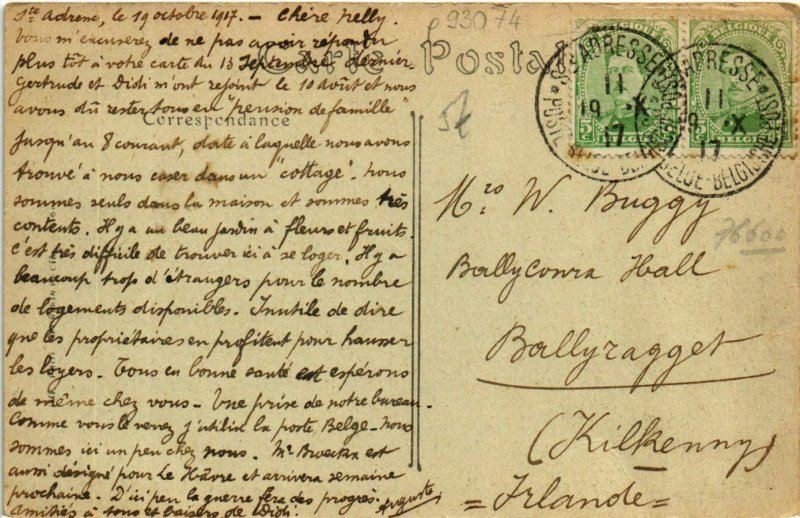 Ste Adresse, le 19 octobre 1917. — Chère Nelly.
Vous m'excuserez de ne pas avoir répondu
plus tôt à votre carte du 13 Septembre dernier.
Gertrude et Didi m'ont rejoint le 10 août et nous
avons dû rester tous en "pension de famille"
jusqu'au 8 courant, date à laquelle nous avons
trouvé à nous caser dans un "cottage". nous
sommes seuls dans la maison et sommes très
contents. Il y a un beau jardin à fleurs et fruits.
C'est très difficile de trouver ici à se loger. Il y a
beaucoup trop d'étrangers pour le nombre
de logements disponibles. Inutile de dire
que les propriétaires en profitent pour hausser
les loyers. Tous en bonne santé et espérons
de même chez vous. Une prise de notre bureau.
Comme vous le verrez j'utilise la poste Belge. nous
sommes ici un peu chez nous. Mr Broeckx est
aussi désigné pour Le Hâvre et arrivera semaine
prochaine. D'ici peu la guerre fera des progrès.
amitiés à tous et baisers de Didi. Auguste
Carte Postale
Correspondance
93074
57
BELGIQUE
5
BELGIE
BELGIQUE
5
BELGIE
STE ADRESSE
11
19 X
17
POSTE BELGE-BELGISCHE POST
STE ADRESSE
11
19 X
17
POSTE BELGE-BELGISCHE POST
Mrs W. Buggy
76600
Ballyconra Hall
Ballyragget
(Kilkenny)
= Irlande =